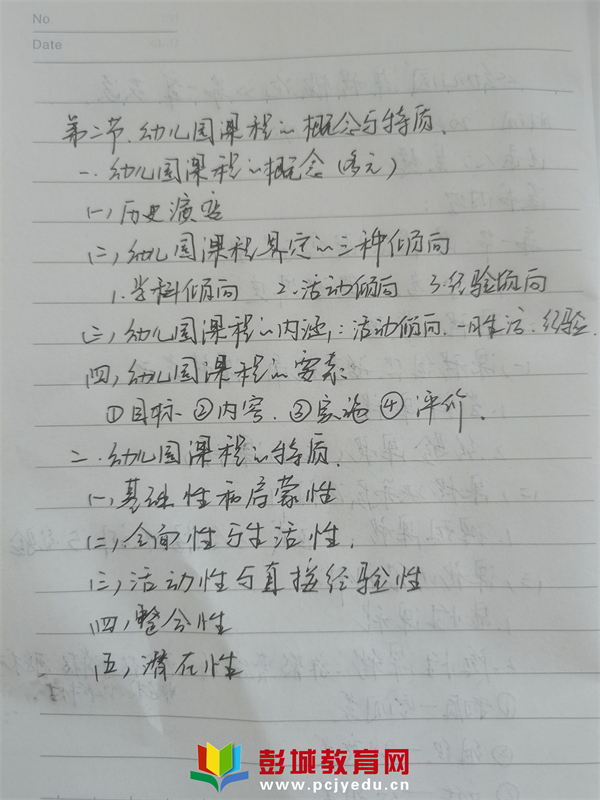 No.
Date
第二节、幼儿园课程的概念与特质.
一. 幼儿园课程的概念 (多元)
(一) 历史演变
(二) 幼儿园课程界定的三种倾向
1. 学科倾向 2. 活动倾向 3. 经验倾向
(三) 幼儿园课程的内涵: 活动倾向. 一日生活. 经验.
(四) 幼儿园课程的要素:
① 目标. ② 内容. ③ 实施 ④ 评价.
二. 幼儿园课程的特质.
(一) 基础性和启蒙性
(二) 全面性与生活性.
(三) 活动性与直接经验性
(四) 整合性
(五) 潜在性
彭城教育网
www.pcjyedu.cn